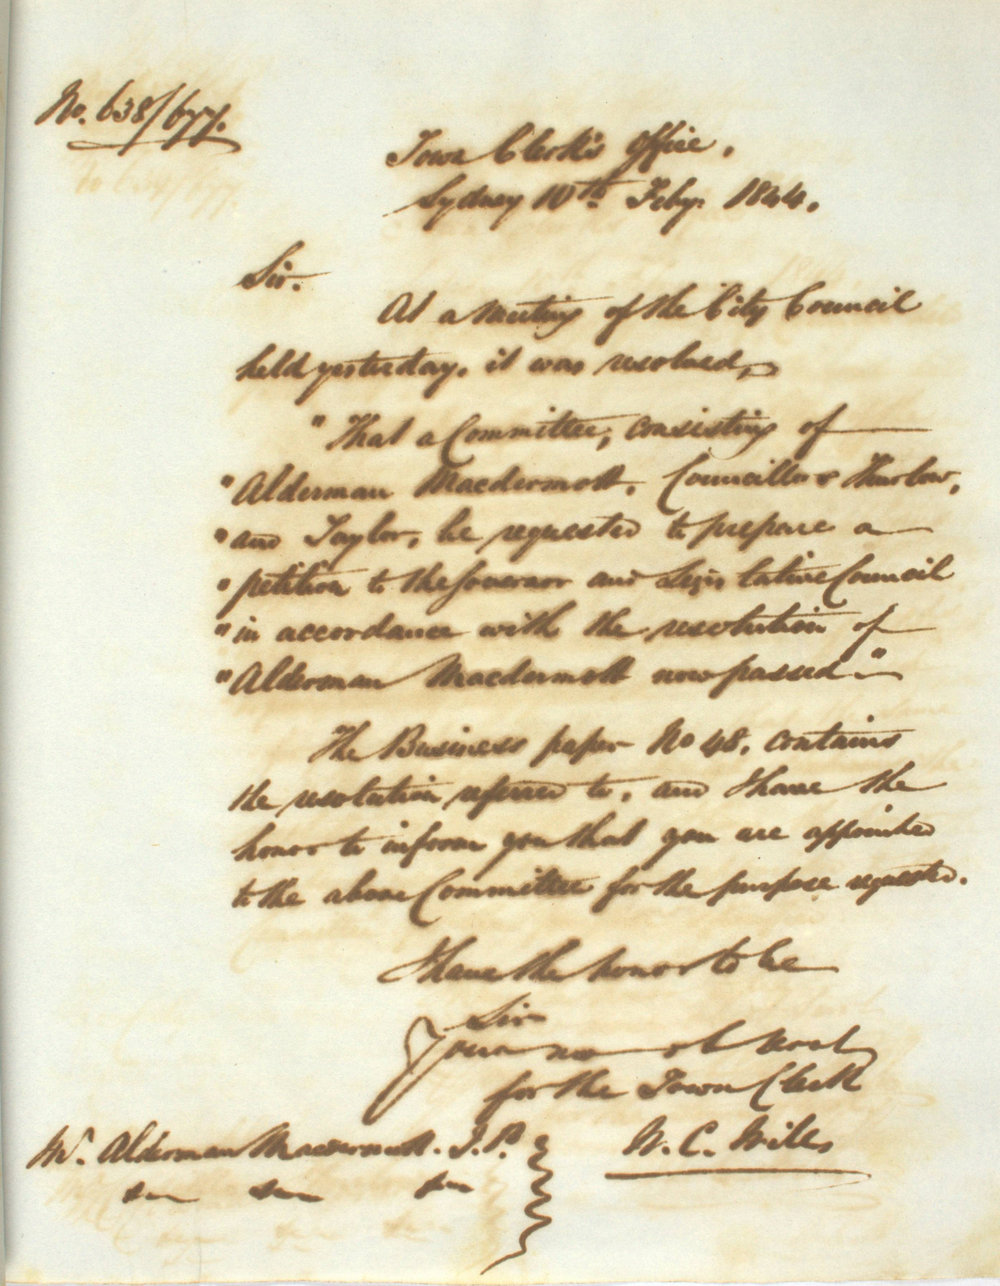 No. 638/677.
Town Clerk's Office.
Sydney 10th Feby. 1844.
Sir.
At a Meeting of the City Council
held yesterday, it was resolved,
"That a Committee, consisting of
"Alderman Macdermott, Councillors Thurlow,
"and Taylor, be requested to prepare a
"petition to the Governor and Legislative Council
"in accordance with the resolution of
"Alderman Macdermott now passed."
The Business paper No 48, contains
the resolution referred to, and I have the
honor to inform you that you are appointed
to the above Committee for the purpose requested.
I have the honor to be
Sir
Your mo ob Servt
for the Town Clerk
W. C. Wills
Mr. Alderman Macdermott. J.P.